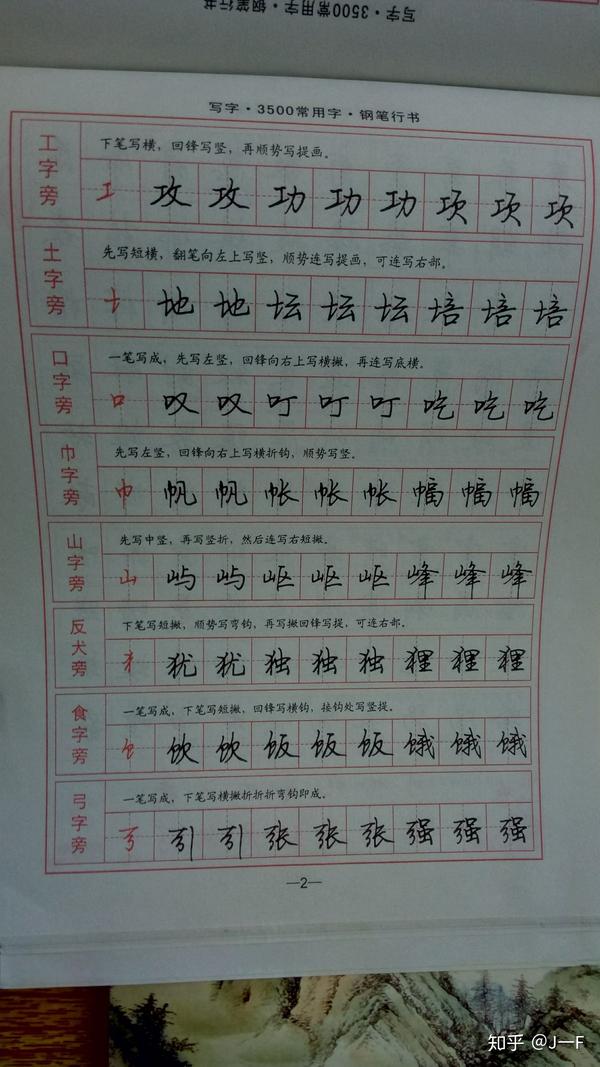 写字·3500常用字·钢笔行书
写字·3500常用字·钢笔行书
工字旁
下笔写横，回锋写竖，再顺势写提画。
工 攻 攻 功 功 功 项 项 项
土字旁
先写短横，翻笔向左上写竖，顺势连写提画，可连写右部。
土 地 地 坛 坛 坛 培 培 培
口字旁
一笔写成，先写左竖，回锋向右上写横撇，再连写底横。
口 叹 叹 叮 叮 叮 吃 吃 吃
巾字旁
先写左竖，回锋向右上写横折钩，顺势写竖。
巾 帆 帆 帐 帐 帐 幅 幅 幅
山字旁
先写中竖，再写竖折，然后连写右短撇。
山 屿 屿 岖 岖 岖 峰 峰 峰
反犬旁
下笔写短撇，顺势写弯钩，再写撇回锋写提，可连右部。
犭 犹 犹 独 独 独 狸 狸 狸
食字旁
一笔写成，下笔写短撇，回锋写横钩，接钩处写竖提。
饣 饮 饮 饭 饭 饭 饿 饿 饿
弓字旁
一笔写成，下笔写横撇折折折弯钩即成。
弓 引 引 张 张 张 强 强 强
—2—
知乎 @J—F